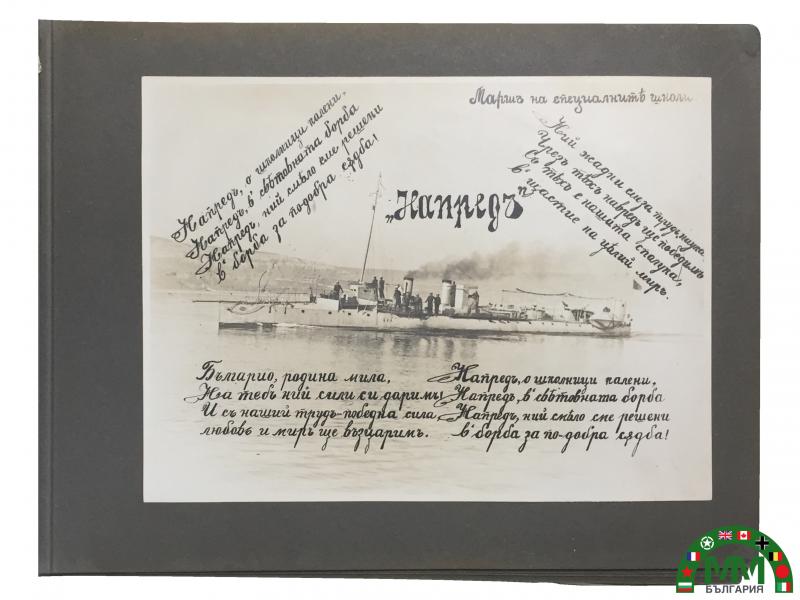 Маршъ на специалнитѣ школи.
Напредъ, о школници калени,
Напредъ, в' свѣтовната борба
Напредъ, ний смѣло сме решени
в' борба за по добра сѫдба!
„Напредъ"
Ний жадни сме за трудъ, наука
Чрезъ тѣхъ напредъ ще победимъ
Со тѣхъ е нашата сполука,
в' щастие на целий миръ.
Българио, родина мила,
На тебъ ний сили си даримъ!
И съ наший трудъ-победна сила
любовь и миръ ще възцаримъ.
Напредъ, о школници калени,
Напредъ, в' свѣтовната борба
Напредъ, ний смѣло сме решени
в' борба за по-добра сѫдба!
MM
БЪЛГАРИЯ